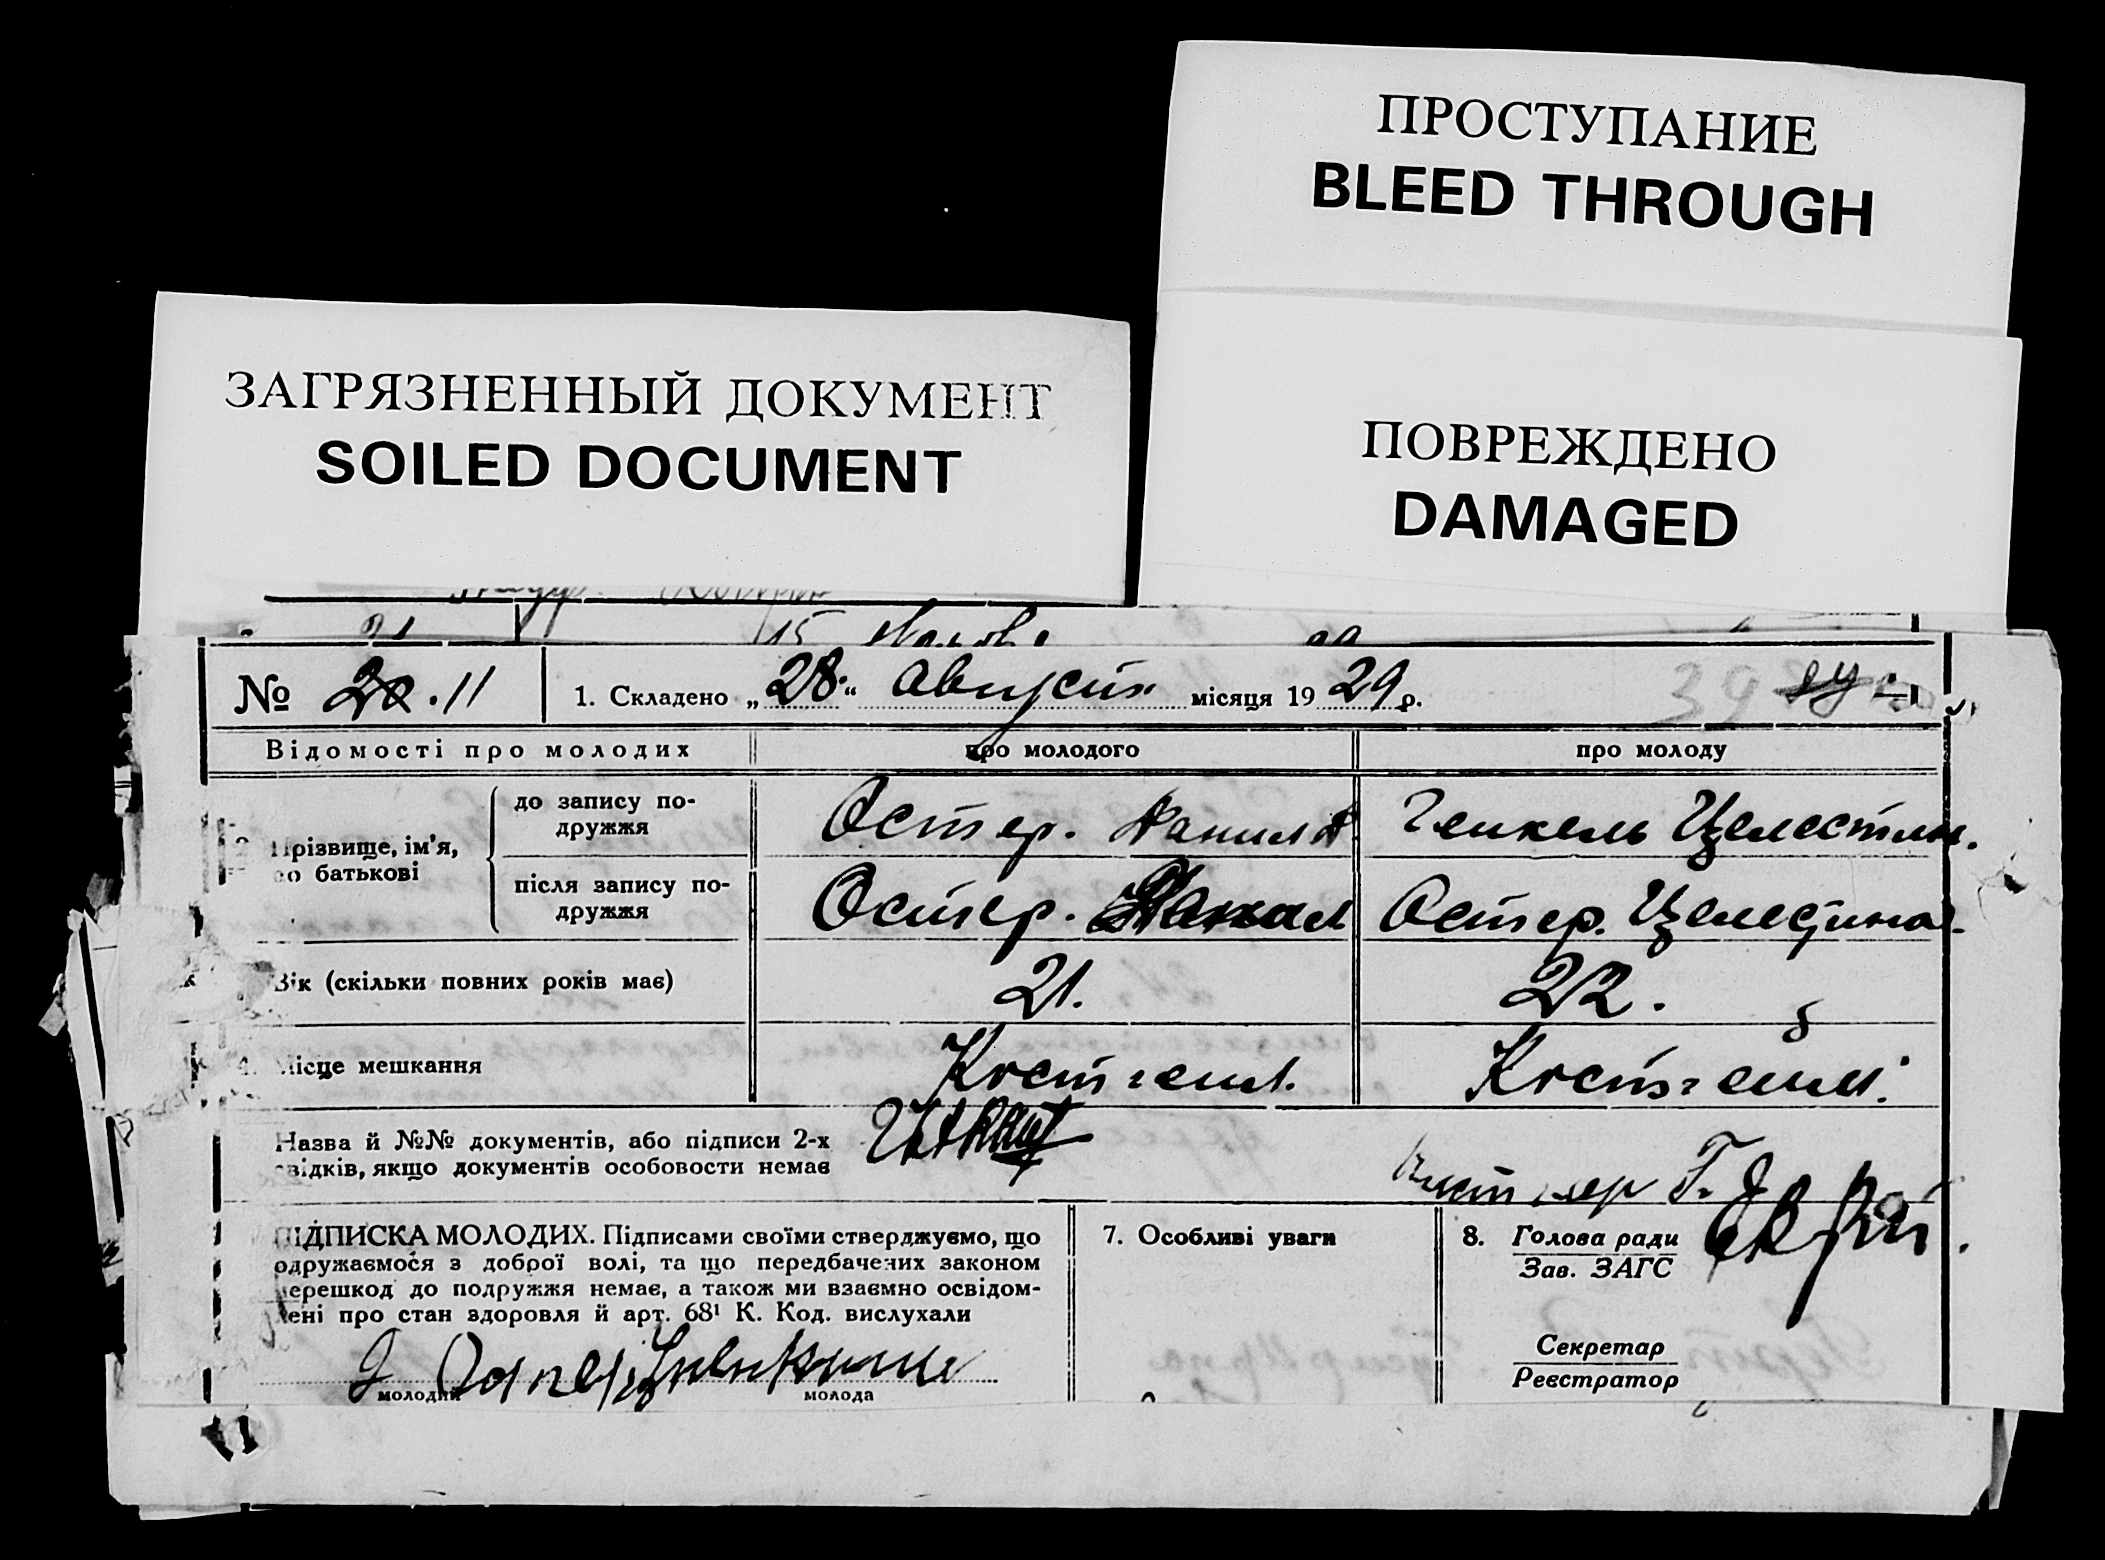 ПРОСТУПАНИЕ
BLEED THROUGH
ЗАГРЯЗНЕННЫЙ ДОКУМЕНТ
SOILED DOCUMENT
ПОВРЕЖДЕНО
DAMAGED
21 15
№ 20. 11 1. Складено „28“ Августа місяця 1929 р. 39
Відомості про молодих про молодого про молоду
Прізвище, ім'я, по батькові
до запису по-
дружжя
Остер. Генкель Целестин.
після запису по-
дружжя
Остер. Остер. Целестина.
Вік (скільки повних років має) 21. 22.
4. Місце мешкання Костгейм. Костгейм.
Назва й №№ документів, або підписи 2-х
свідків, якщо документів особовости немає
ПІДПИСКА МОЛОДИХ. Підписами своїми стверджуємо, що
одружаємося з доброї волі, та що передбачених законом
перешкод до подружжя немає, а також ми взаємно освідом-
лені про стан здоровля й арт. 68¹ К. Код. вислухали
молодий молода
7. Особливі уваги
8. Голова ради
Зав. ЗАГС
Секретар
Реєстратор